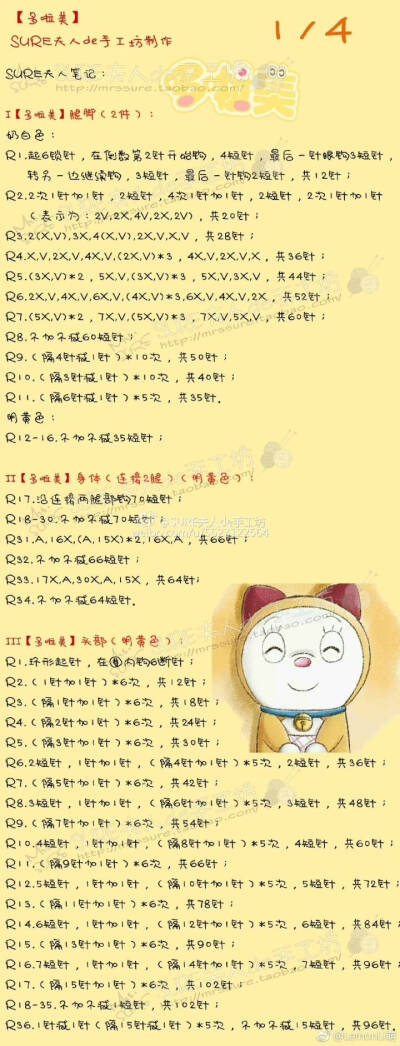 【多啦美】
1/4
SURE夫人de手工坊制作
SURE夫人笔记：
多啦美
I【多啦美】腿脚（2件）：
奶白色：
R1.起6锁针，在倒数第2针开始钩，4短针，最后一针眼钩3短针，
转另一边继续钩，3短针，最后一针钩2短针，共12针；
R2.2次1针加1针，2短针，4次1针加1针，2短针，2次1针加1针
（表示为：2V,2X,4V,2X,2V），共20针；
R3.2(X,V),3X,4(X,V),2X,V,X,V，共28针；
R4.X,V,2X,V,4X,V,(2X,V)*3，4X,V,2X,V,X，共36针；
R5.(3X,V)*2，5X,V,(3X,V)*3，5X,V,3X,V，共44针；
R6.2X,V,4X,V,6X,V,(4X,V)*3,6X,V,4X,V,2X，共52针；
R7.(5X,V)*2，7X,V,(5X,V)*3，7X,V,5X,V，共60针；
R8.不加不减60短针；
R9.（隔4针减1针）*10次，共50针；
R10.（隔3针减1针）*10次，共40针；
R11.（隔6针减1针）*5次，共35针。
明黄色：
R12-16.不加不减35短针；
II【多啦美】身体（连接2腿）（明黄色）：
R17.沿连接两腿部钩70短针；
R18-30.不加不减70短针；
R31.A,16X,(A,15X)*2,16X,A，共66针；
R32.不加不减66短针；
R33.17X,A,30X,A,15X，共64针；
R34.不加不减64短针。
III【多啦美】头部（明黄色）：
R1.环形起针，在圈内钩6断针；
R2.（1针加1针）*6次，共12针；
R3.（隔1针加1针）*6次，共18针；
R4.（隔2针加1针）*6次，共24针；
R5.（隔3针加1针）*6次，共30针；
R6.2短针，1针加1针，（隔4针加1针）*5次，2短针，共36针；
R7.（隔5针加1针）*6次，共42针；
R8.3短针，1针加1针，（隔6针加1针）*5次，3短针，共48针；
R9.（隔7针加1针）*6次，共54针；
R10.4短针，1针加1针，（隔8针加1针）*5次，4短针，共60针；
R11.（隔9针加1针）*6次，共66针；
R12.5短针，1针加1针，（隔10针加1针）*5次，5短针，共72针；
R13.（隔11针加1针）*6次，共78针；
R14.6短针，1针加1针，（隔12针加1针）*5次，6短针，共84针
R15.（隔13针加1针）*6次，共90针；
R16.7短针，1针加1针，（隔14针加1针）*5次，7短针，共96针
R17.（隔15针加1针）*6次，共102针；
R18-35.不加不减1短针，共102针；
R36.1针减1针（隔15针减1针）*5次，不加不减15短针，共96针。
@LemonLi萌